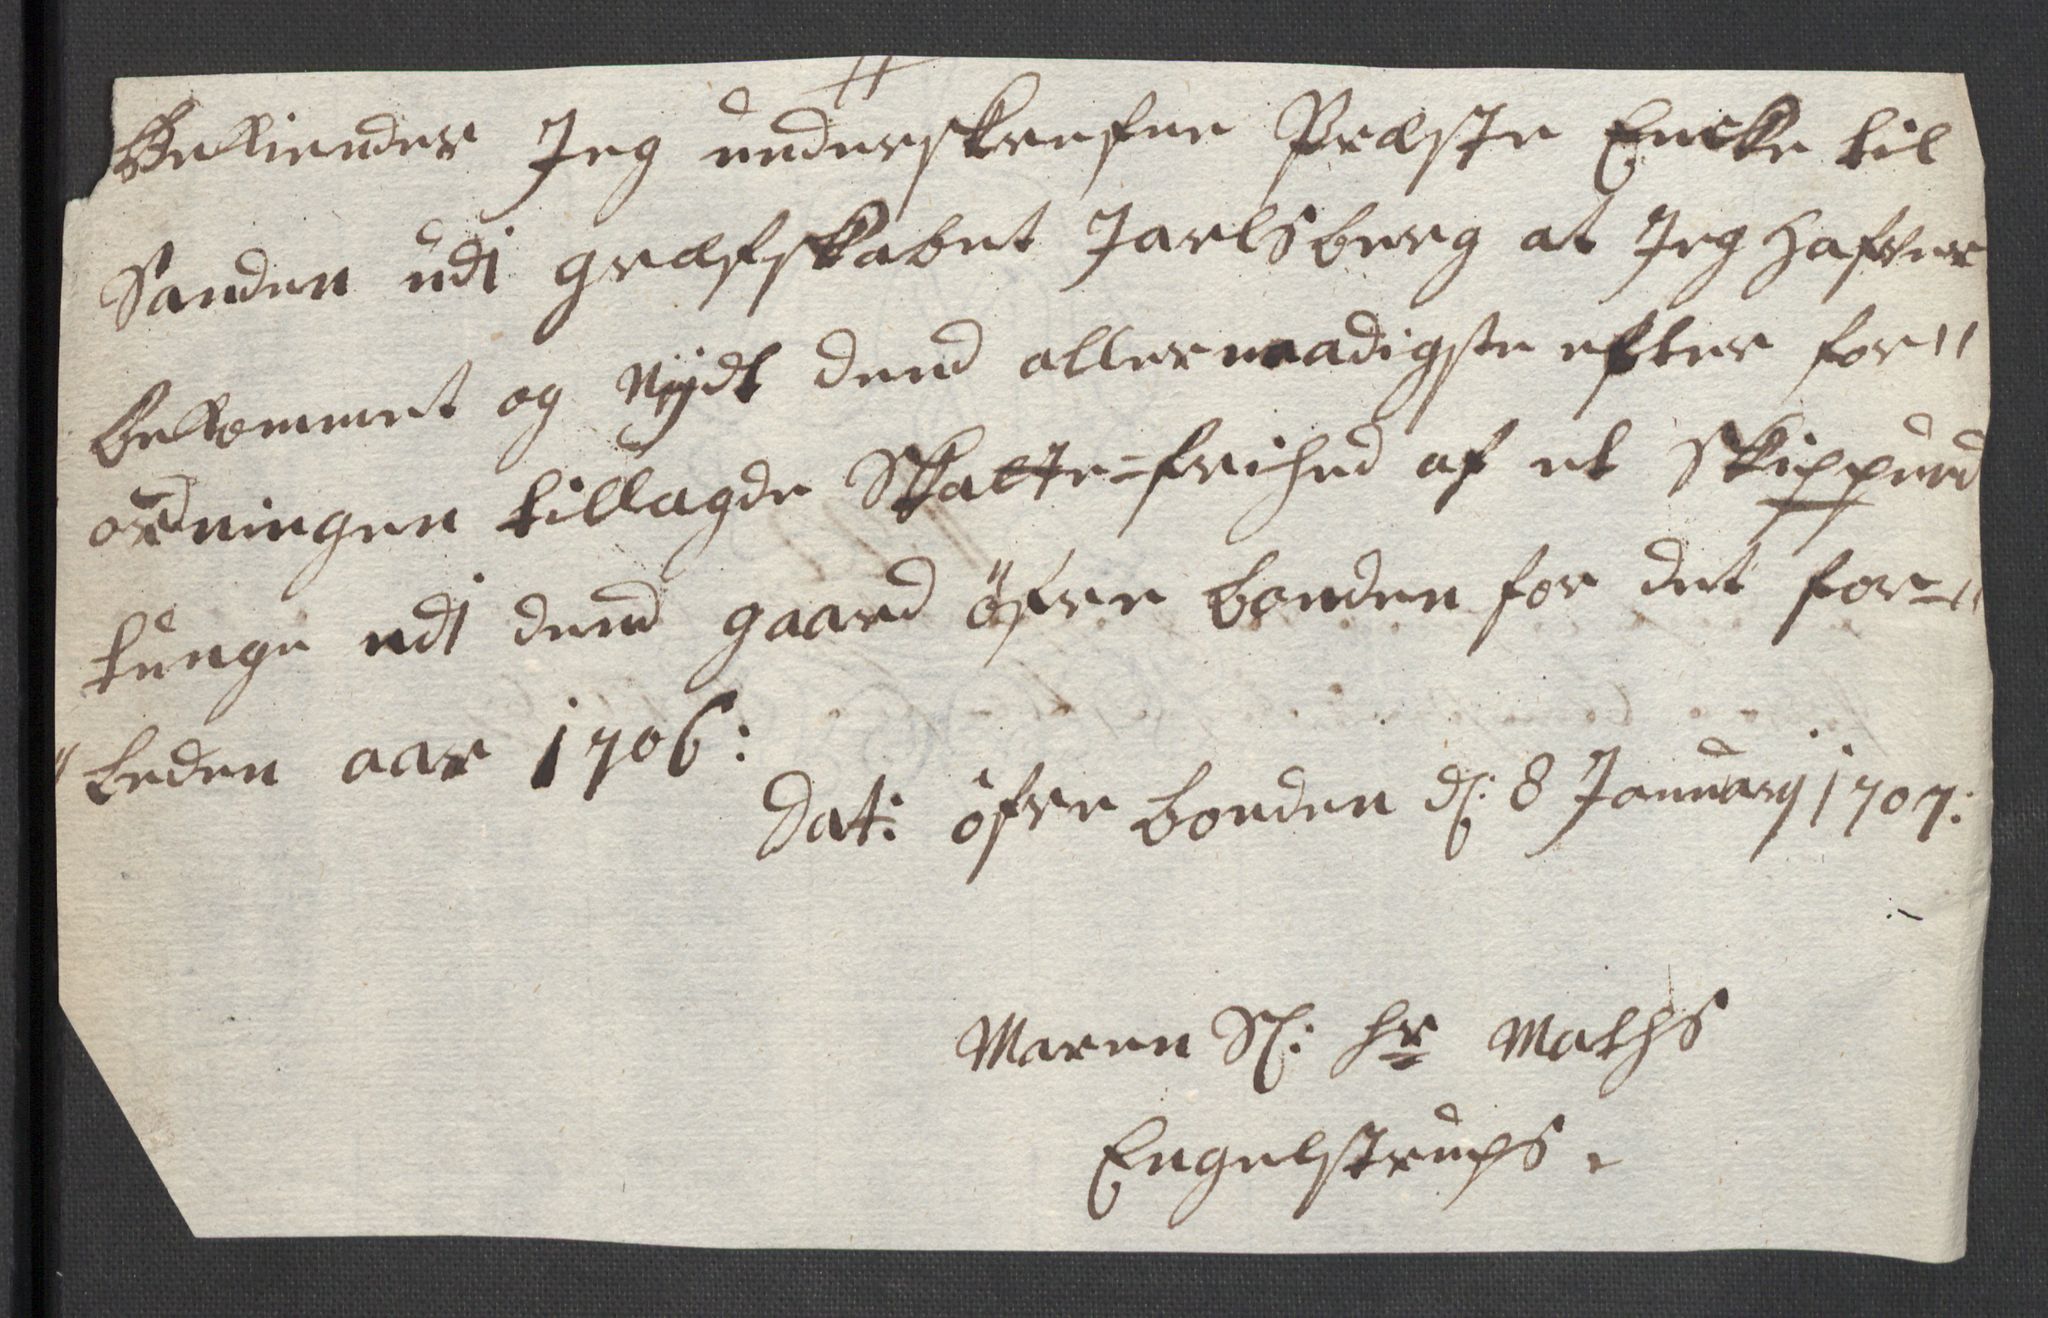 Bekiender Jeg underskrefne Præste Encke til
Sanden udi græfskabet Jarlsberg at Jeg hafver
bekommet og Nydt dend allernaadigste efter for"
ordningen tillagde Skatte=frihed af et Skippund
tunge udi dend gaard öfre bonden for det for="
"leden aar 1706:
Dat: öfre bonden d: 8 January 1707:
Maren Sl: hr Maths
Engelstrups.